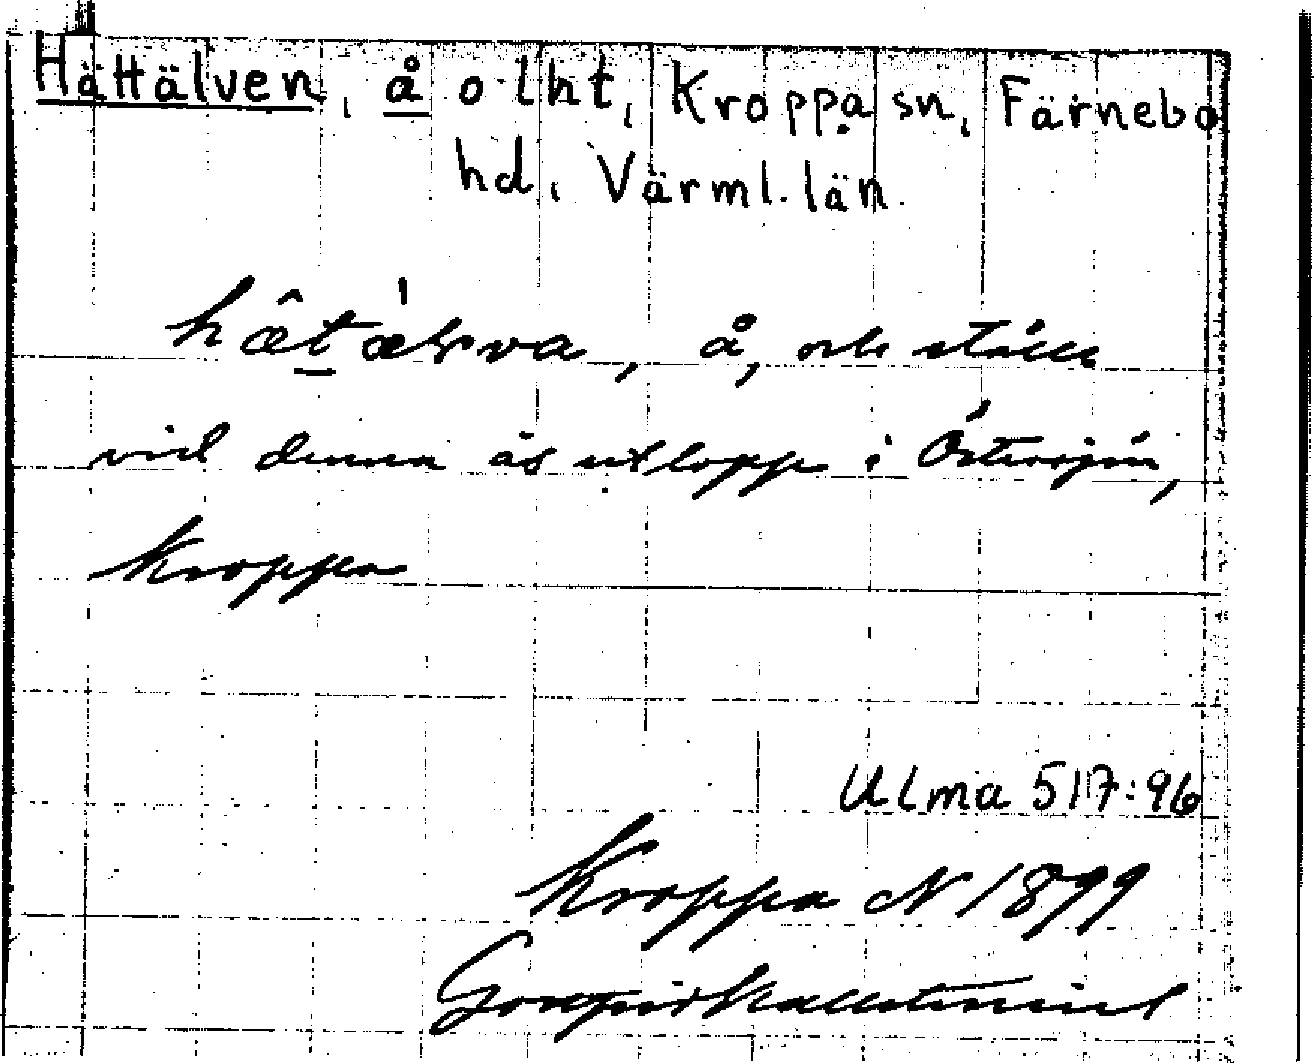 Hättälven, å o lht, Kroppa sn, Färnebo
hd, Värml. län.
hæ̂tæ̀lva, å, och ställe
vid denna ås utlopp i Östersjön,
Kroppa
Ulma 517:96
Kroppa N 1899
Gottfrid Kallstenius